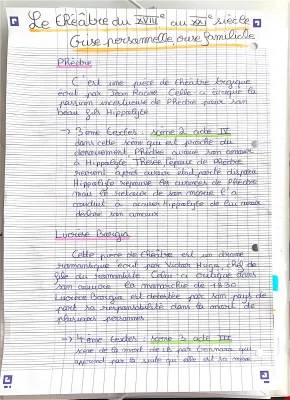 Le théâtre du XVIIe au XXIe siècle
Crise personnelle, crise familiale
Phèdre
C'est une pièce de théâtre tragique
écrit par Jean Racine. Celle-ci évoque la
passion incestueuse de Phèdre pour son
beau fils Hippolyte
→ 3ème textes : scène 2 acte IV
dans cette scène qui est proche du
dénouement Phèdre avoue son amour
à Hippolyte Thésée l'époux de Phèdre
revient après avoir été porté disparu
Hippolyte repousse les avances de Phèdre
mais le retour de son mari l'a
conduit à accuser Hippolyte de lui avoir
déclaré son amour
Lucrèce Borgia
Cette pièce de théâtre est un drame
romantique écrit par Victor Hugo, chef de
file du romantisme. Celui-ci critique dans
son œuvre la monarchie de 1830
Lucrèce Borgia est détestée par son pays de
part sa responsabilité dans la mort de
plusieurs personnes
→ 4ème textes : scène 3 acte III
scène de la mort de LB par Gennaro qui
apprend par la suite qu'elle est sa mère